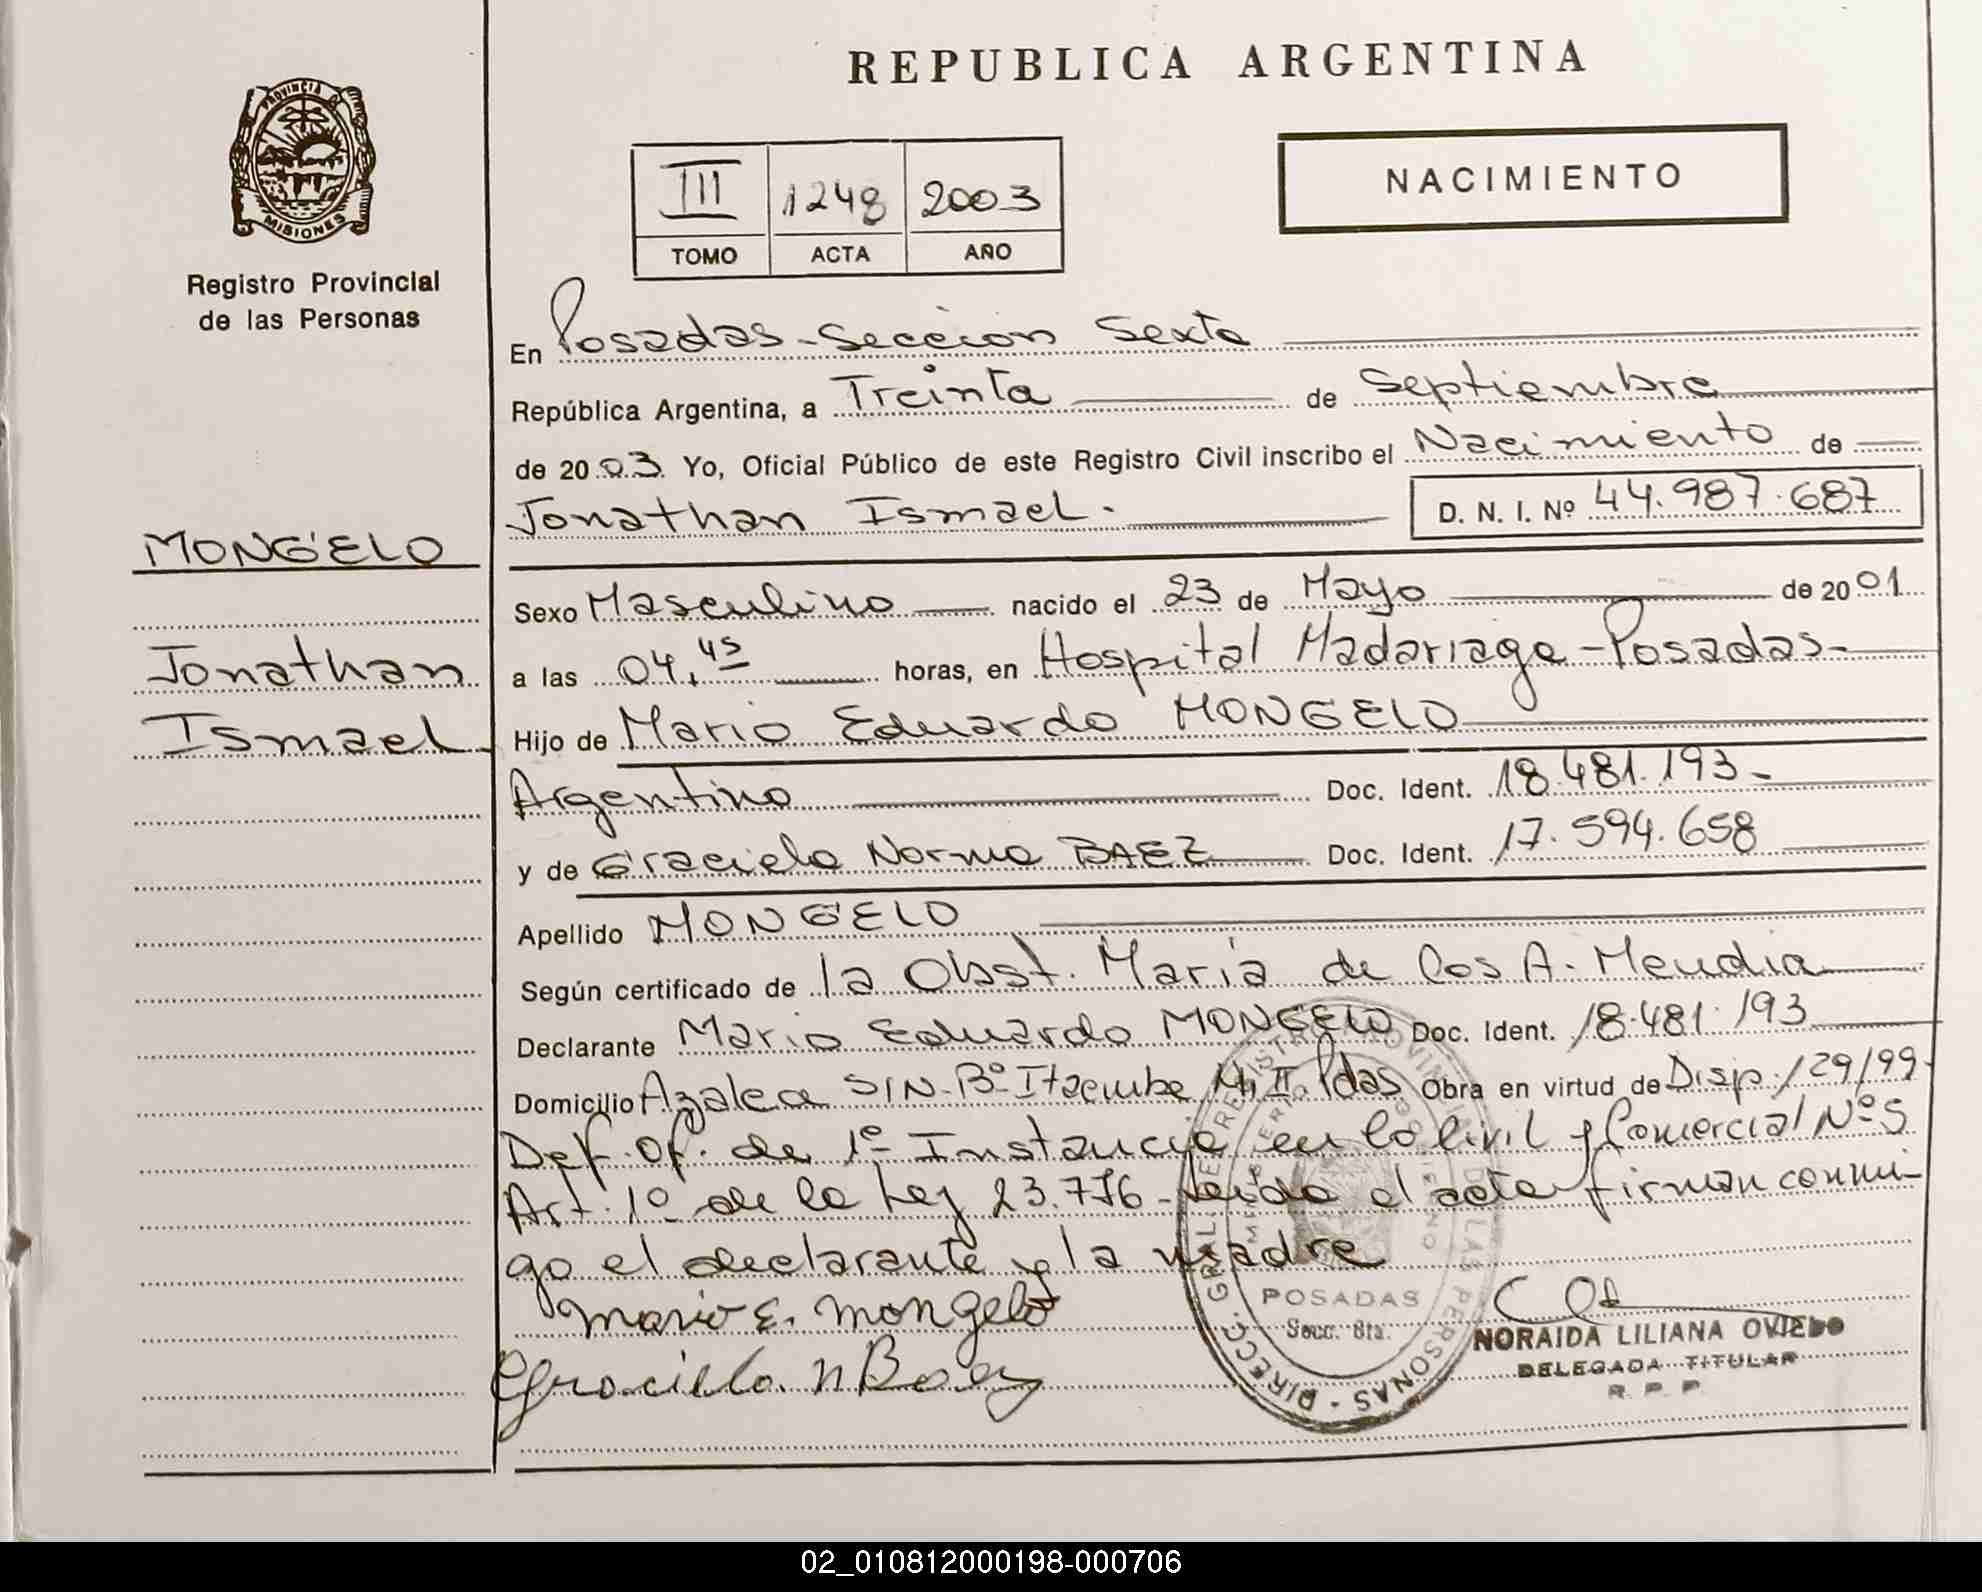 REPUBLICA ARGENTINA
PROVINCIA D
MISIONES
Registro Provincial
de las Personas
III 1248 2003
TOMO ACTA AÑO
NACIMIENTO
En Posadas - Sección Sexta
República Argentina, a Treinta de Septiembre
de 2003. Yo, Oficial Público de este Registro Civil inscribo el Nacimiento de
Jonathan Ismael. D. N. I. Nº 44.987.687
MONGELO
Jonathan
Ismael
Sexo Masculino nacido el 23 de Mayo de 2001
a las 04,45 horas, en Hospital Madariaga - Posadas -
Hijo de Mario Eduardo MONGELO
Argentino Doc. Ident. 18.481.193 -
y de Graciela Norma BAEZ Doc. Ident. 17.594.658
Apellido MONGELO
Según certificado de la Obst. María de los A. Mendia
Declarante Mario Eduardo MONGELO Doc. Ident. 18.481.193
Domicilio Azalea S/N - Bº Itaembe M, II Pdas Obra en virtud de Disp. 129/99
Def. Of. de 1º Instancia en lo Civil y Comercial Nº 5
Art. 1º de la Ley 23.776 - Leída el acta firman conmi-
go el declarante y la madre
Mario E. Mongelo
Graciela N Baez
DIRECC. GRAL. DE REGISTRO PROVINCIAL DE LAS PERSONAS
MINISTERIO GOBIERNO
POSADAS
Secc. 6ta.
NORAIDA LILIANA OVIEDO
DELEGADA TITULAR
R. P. P.
02_010812000198-000706